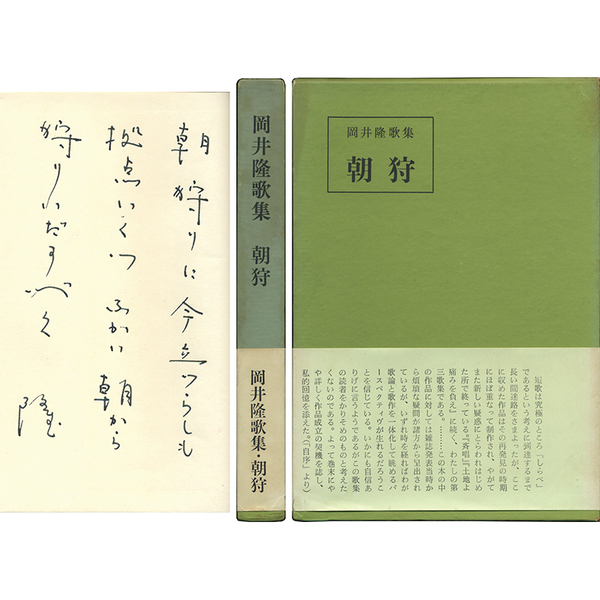 朝狩りに今立つらしも
拠点いくつふかい朝から
狩りいだすべく
隆
岡井隆歌集 朝狩
岡井隆歌集・朝狩
岡井隆歌集
朝狩
短歌は究極のところ「しらべ」
であるという考えに到達するまで
長い間迷路をさまよったが、ここ
に収めた作品はその再発見の時期
にほぼ重なって制作され、やがて
また新しい疑惑にとらわれはじめ
た所で終っている。『斉唱』『土地よ
痛みを負え』に続く、わたしの第
三歌集である。………この本の中
の作品に対しては雑誌発表当時か
ら煩瑣な疑問が諸方から呈出され
ているが、いずれ時を経ればわが
歌論と歌作を一体化して眺めるパ
ースペクティヴが生れるだろうこ
とを信じている。いかにも自信あ
りげに言うようであるがこの歌集
の読者をかりそめのものと考えた
くないのである。よって巻末にや
や詳しく作品成立の契機を誌し、
私的回憶を添えた。（「自序」より）